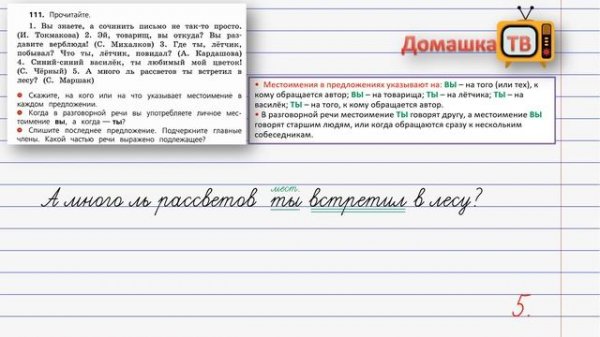 111. Прочитайте.
1. Вы знаете, а сочинить письмо не так-то просто.
(И. Токмакова) 2. Эй, товарищ, вы откуда? Вы раз-
давите верблюда! (С. Михалков) 3. Где ты, лётчик,
побывал? Что ты, лётчик, повидал? (А. Кардашова)
4. Синий-синий василёк, ты любимый мой цветок!
(С. Чёрный) 5. А много ль рассветов ты встретил в
лесу? (С. Маршак)
● Скажите, на кого или на что указывает местоимение в
каждом предложении.
● Когда в разговорной речи вы употребляете личное мес-
тоимение вы, а когда — ты?
● Спишите последнее предложение. Подчеркните главные
члены. Какой частью речи выражено подлежащее?
Домашка ТВ
• Местоимения в предложениях указывают на: ВЫ – на того (или тех), к
кому обращается автор; ВЫ – на товарища; ТЫ – на лётчика; ТЫ – на
василёк; ТЫ – на того, к кому обращается автор.
• В разговорной речи местоимение ТЫ говорят другу, а местоимение ВЫ
говорят старшим людям, или когда обращаются сразу к нескольким
собеседникам.
мест.
А много ль рассветов ты встретил в лесу?
5.